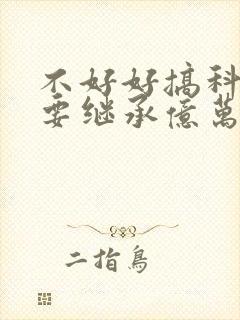 不好好搞科
要继承億萬
二指鳥